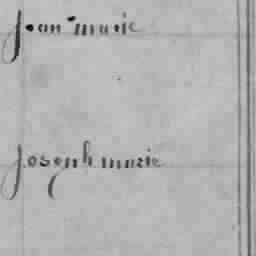 jean marie
joseph marie